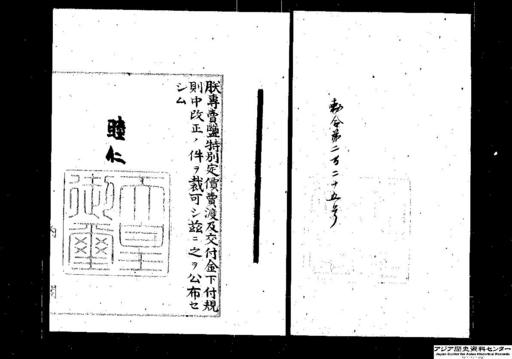 勅令第二百二十五号
朕専賣鹽特別定價賣渡及交付金下付規
則中改正ノ件ヲ裁可シ茲ニ之ヲ公布セ
シム
睦仁
天皇御璽
内閣
アジア歴史資料センター
Japan Center for Asian Historical Records